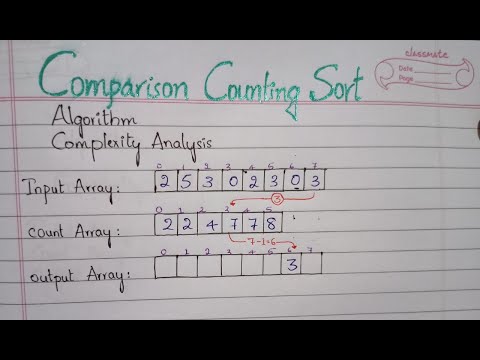 classmate
Date
Page
Comparison Counting Sort
Algorithm
Complexity Analysis
0 1 2 3 4 5 6 7
Input Array: 2 5 3 0 2 3 0 3
3
0 1 2 3 4 5
count Array: 2 2 4 7 7 8
7-1=6
0 1 2 3 4 5 6 7
output Array: 3